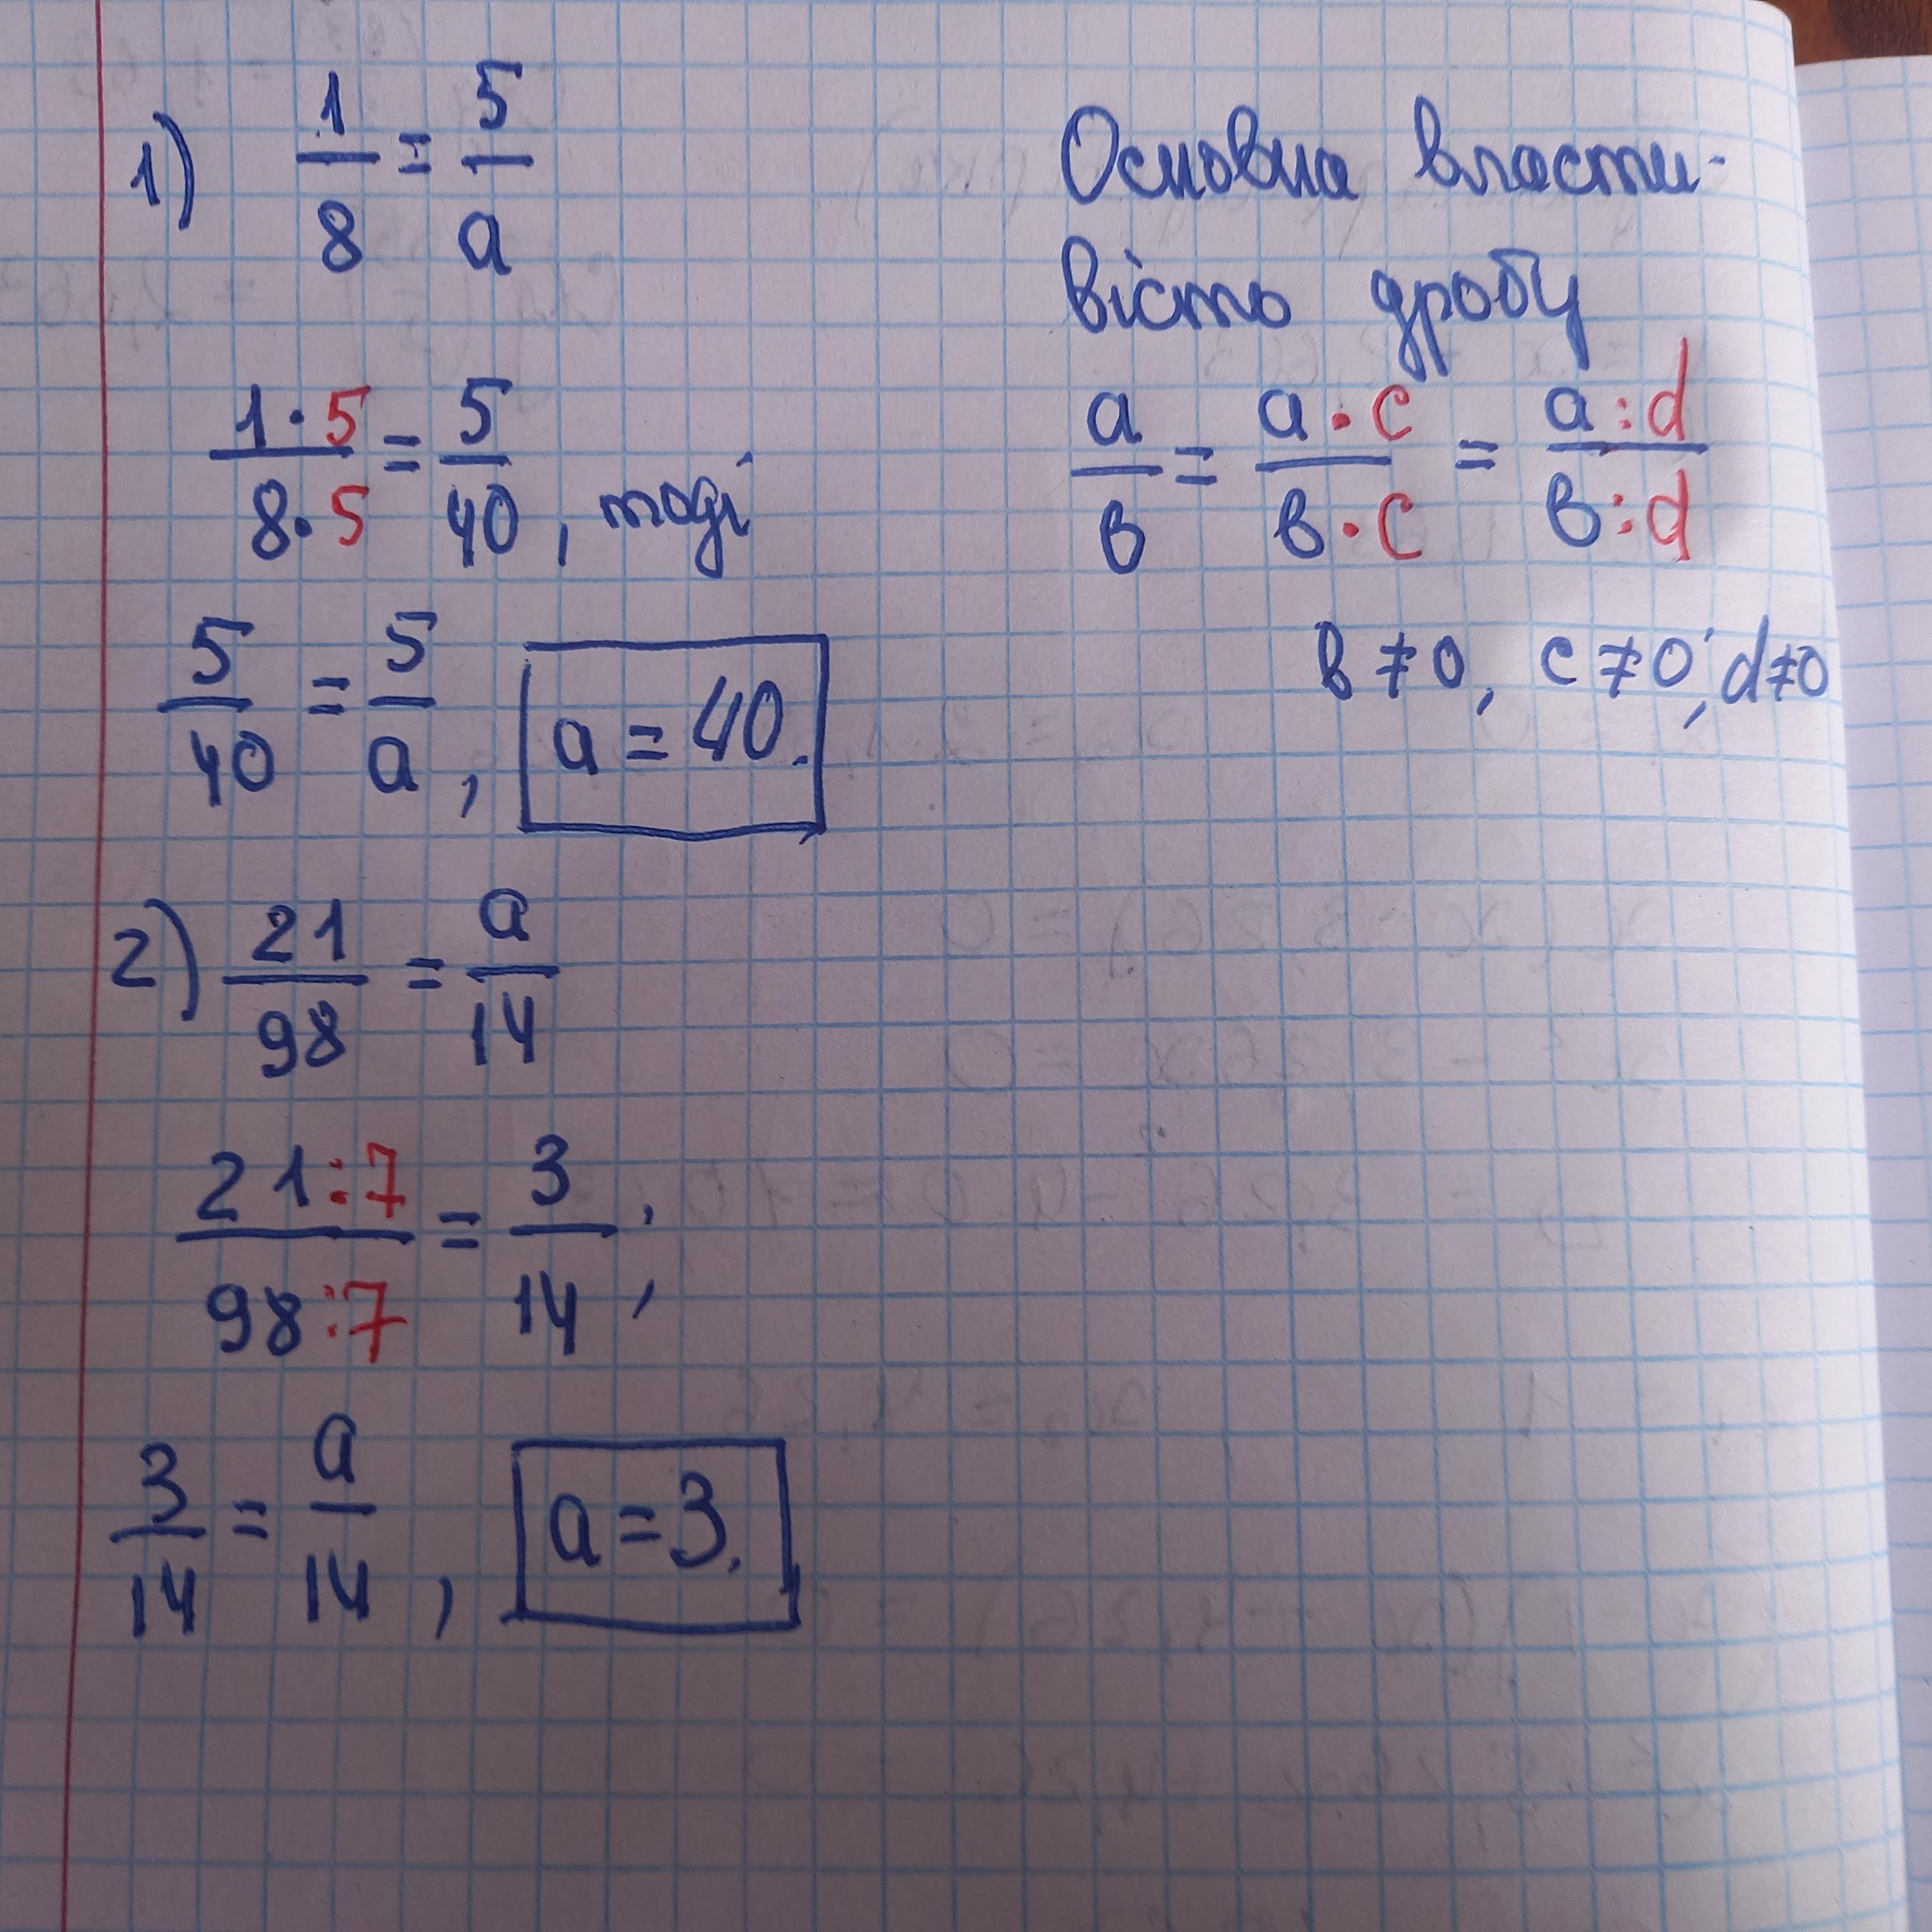 1) 1/8 = 5/a
1·5/8·5 = 5/40, тоді
5/40 = 5/a, a = 40.
2) 21/98 = a/14
21:7/98:7 = 3/14,
3/14 = a/14, a = 3.
Основна власти-
вість дробу
a/в = a·c/в·c = a:d/в:d
в ≠ 0, c ≠ 0, d ≠ 0